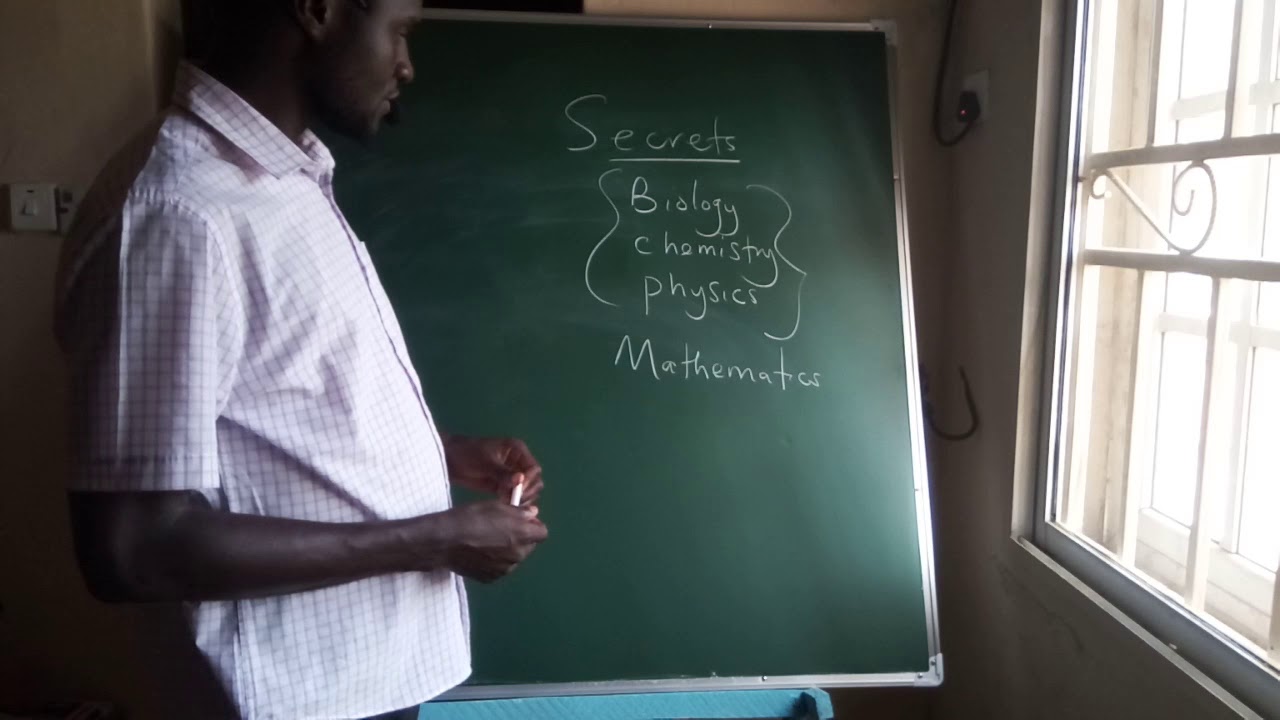 Secrets
Biology
chemistry
physics
Mathematics